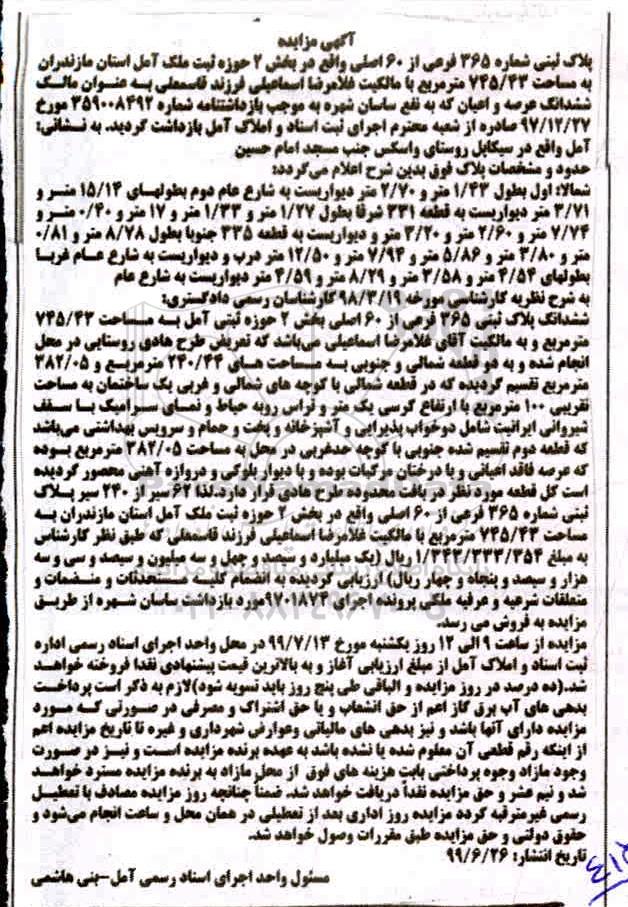 آگهی مزایده
پلاک ثبتی شماره ۳۶۵ فرعی از ۶۰ اصلی واقع در بخش ۲ حوزه ثبت ملک آمل استان مازندران
به مساحت ۷۴۵/۴۳ مترمربع با مالکیت غلامرضا اسماعیلی فرزند قاسمعلی به عنوان مالک
ششدانگ عرصه و اعیان که به نفع ساسان شهره به موجب بازداشتنامه شماره ۳۵۹۰۰۸۴۹۲ مورخ
۹۷/۱۲/۲۷ صادره از شعبه محترم اجرای ثبت اسناد و املاک آمل بازداشت گردید. به نشانی:
آمل واقع در سیکاپل روستای واسکس جنب مسجد امام حسین
حدود و مشخصات پلاک فوق بدین شرح اعلام می‌گردد:
شمالا: اول بطول ۱/۴۳ متر و ۲/۷۰ متر دیواریست به شارع عام دوم بطولهای ۱۵/۱۴ متر و
۳/۷۱ متر دیواریست به قطعه ۳۳۱ شرقا بطول ۱/۲۷ متر و ۱/۳۳ متر و ۱۷ متر و ۰/۴۰ متر و
۷/۷۴ متر و ۲/۶۰ متر و ۳/۲۰ متر و دیواریست به قطعه ۳۳۵ جنوبا بطول ۸/۷۸ متر و ۰/۸۱
متر و ۳/۸۰ متر و ۵/۸۶ متر و ۷/۹۴ متر و ۱۲/۵۰ متر درب و دیواریست به شارع عام غربا
بطولهای ۴/۵۴ متر و ۳/۵۸ متر و ۸/۲۹ متر و ۴/۵۹ متر دیواریست به شارع عام
به شرح نظریه کارشناسی مورخه ۹۸/۳/۱۹ کارشناسان رسمی دادگستری:
ششدانگ پلاک ثبتی ۳۶۵ فرعی از ۶۰ اصلی بخش ۲ حوزه ثبتی آمل به مساحت ۷۴۵/۴۳
مترمربع و به مالکیت آقای غلامرضا اسماعیلی می‌باشد که تعریض طرح هادی روستایی در محل
انجام شده و به دو قطعه شمالی و جنوبی به مساحت های ۲۴۰/۴۴ مترمربع و ۳۸۲/۰۵
مترمربع تقسیم گردیده که در قطعه شمالی با کوچه های شمالی و غربی یک ساختمان به مساحت
تقریبی ۱۰۰ مترمربع با ارتفاع کرسی یک متر و تراس روبه حیاط و نمای سرامیک با سقف
شیروانی ایرانیت شامل دوخواب پذیرایی و آشپزخانه و پخت و حمام و سرویس بهداشتی می‌باشد
که قطعه دوم تقسیم شده جنوبی با کوچه حدغربی در محل به مساحت ۳۸۲/۰۵ مترمربع بوده
که عرصه فاقد اعیانی و با درختان مرکبات بوده و با دیوار بلوکی و دروازه آهنی محصور گردیده
است کل قطعه مورد نظر در بافت محدوده طرح هادی قرار دارد.لذا ۶۲ سیر از ۲۴۰ سیر پلاک
ثبتی شماره ۳۶۵ فرعی از ۶۰ اصلی واقع در بخش ۲ حوزه ثبت ملک آمل استان مازندران به
مساحت ۷۴۵/۴۳ مترمربع با مالکیت غلامرضا اسماعیلی فرزند قاسمعلی که طبق نظر کارشناس
به مبلغ ۱/۳۴۳/۳۳۳/۳۵۴ ریال (یک میلیارد و سیصد و چهل و سه میلیون و سیصد و سی و سه
هزار و سیصد و پنجاه و چهار ریال) ارزیابی گردیده به انضمام کلیه مستحدثات و منضمات و
متعلقات شرعیه و عرفیه ملکی پرونده اجرای ۹۷۰۱۸۷۴مورد بازداشت ساسان شهره از طریق
مزایده به فروش می رسد.
مزایده از ساعت ۹ الی ۱۲ روز یکشنبه مورخ ۹۹/۷/۱۳ در محل واحد اجرای اسناد رسمی اداره
ثبت اسناد و املاک آمل از مبلغ ارزیابی آغاز و به بالاترین قیمت پیشنهادی نقدا فروخته خواهد
شد.(ده درصد در روز مزایده و الباقی طی پنج روز باید تسویه شود)لازم به ذکر است پرداخت
بدهی های آب برق گاز اعم از حق انشعاب و یا حق اشتراک و مصرفی در صورتی که مورد
مزایده دارای آنها باشد و نیز بدهی های مالیاتی وعوارض شهرداری و غیره تا تاریخ مزایده اعم
از اینکه رقم قطعی آن معلوم شده یا نشده باشد به عهده برنده مزایده است و نیز در صورت
وجود مازاد وجوه پرداختی بابت هزینه های فوق از محل مازاد به برنده مزایده مسترد خواهد
شد و نیم عشر و حق مزایده نقداً دریافت خواهد شد. ضمناً چنانچه روز مزایده مصادف با تعطیل
رسمی غیرمترقبه گردد مزایده روز اداری بعد از تعطیلی در همان محل و ساعت انجام می‌شود و
حقوق دولتی و حق مزایده طبق مقررات وصول خواهد شد.
تاریخ انتشار: ۹۹/۶/۲۶
مسئول واحد اجرای اسناد رسمی آمل-بنی هاشمی